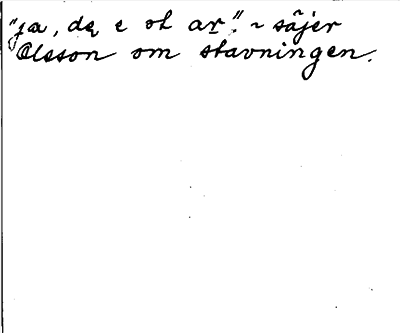 "ja, dę e ot ar̨." ~ säjer
Olsson om stavningen.